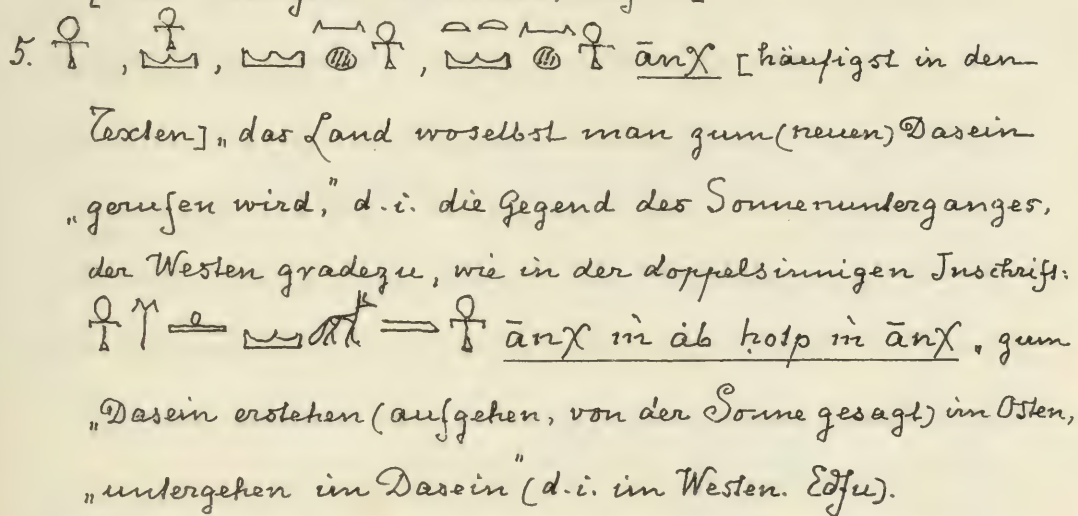 5. 𓋹, 𓋹𓈉, 𓈉𓈖𓐍𓋹, 𓏏𓏏𓈉𓈖𓐍𓋹 ānχ [häufigst in den
Texten] „das Land woselbst man zum (neuen) Dasein
„gerufen wird," d. i. die Gegend des Sonnenunterganges,
der Westen gradezu, wie in der doppelsinnigen Inschrift:
𓋹 ānχ m ȧb ḥotp m ānχ „zum
„Dasein erstehen (aufgehen, von der Sonne gesagt) im Osten,
„untergehen im Dasein" (d. i. im Westen. Edfu).